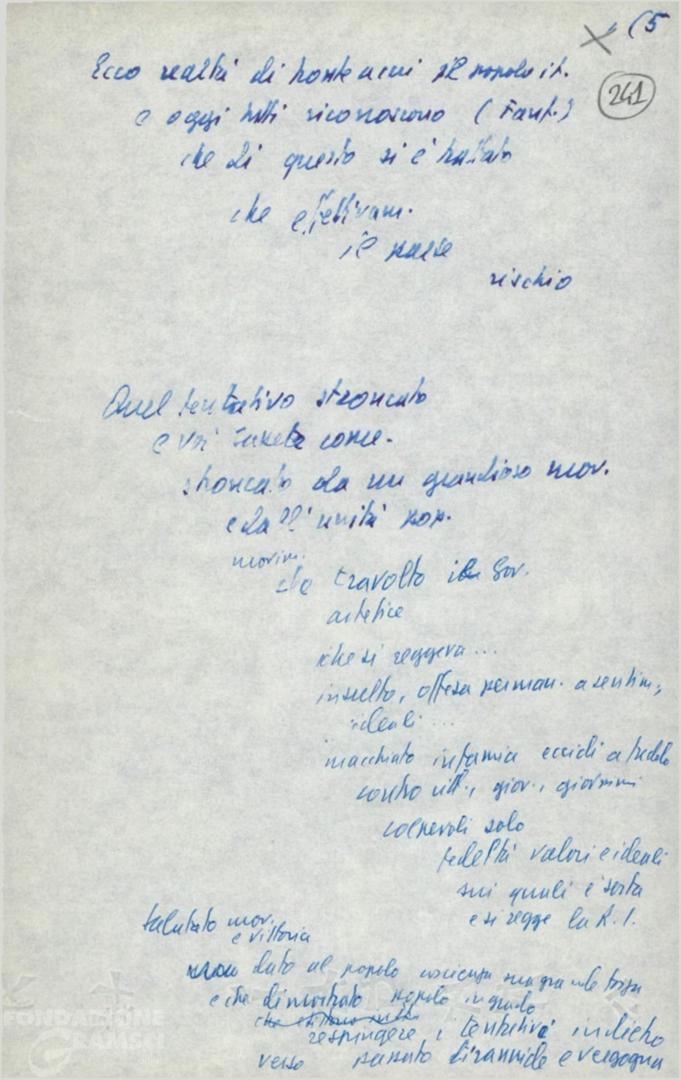 (5
241
Ecco realtà di fronte a cui il popolo it.
e oggi tutti riconoscono (Fanf.)
che di questo si è trattato
che effettivam.
il paese
rischio
Quel tentativo stroncato
e voi sapete come.
stroncato da un grandioso mov.
e dall'unità pop.
movim.
che travolto il Gov.
che si reggeva...
insulto, offesa perman. a sentim.,
ideali...
macchiato infamia eccidi a freddo
contro citt., giov., giovanni
colpevoli solo
fedeltà valori e ideali
sui quali è sorta
e si regge la R. I.
salutato mov.
e vittoria
dato al popolo coscienza sua grande forza
e che dimostrato popolo in grado
respingere i tentativi indietro
verso passato tirannide e vergogna
FONDAZIONE
GRAMSCI